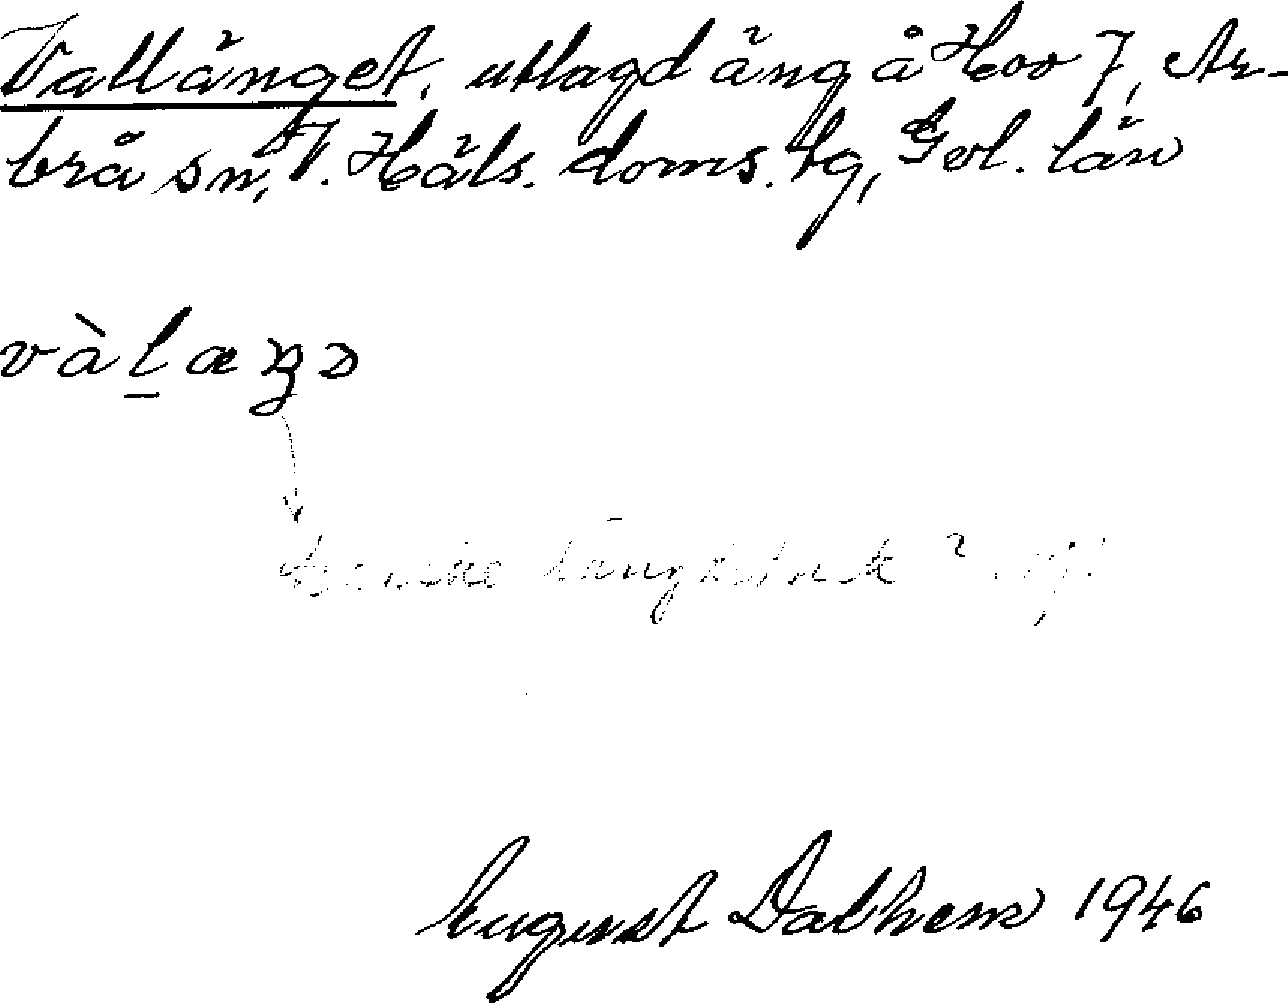 Vallänget, utlagd äng å Hov 7, Ar-
brå sn, V. Häls. doms. tg, Gvl. län
vàlæŋə
August Dalhem 1946